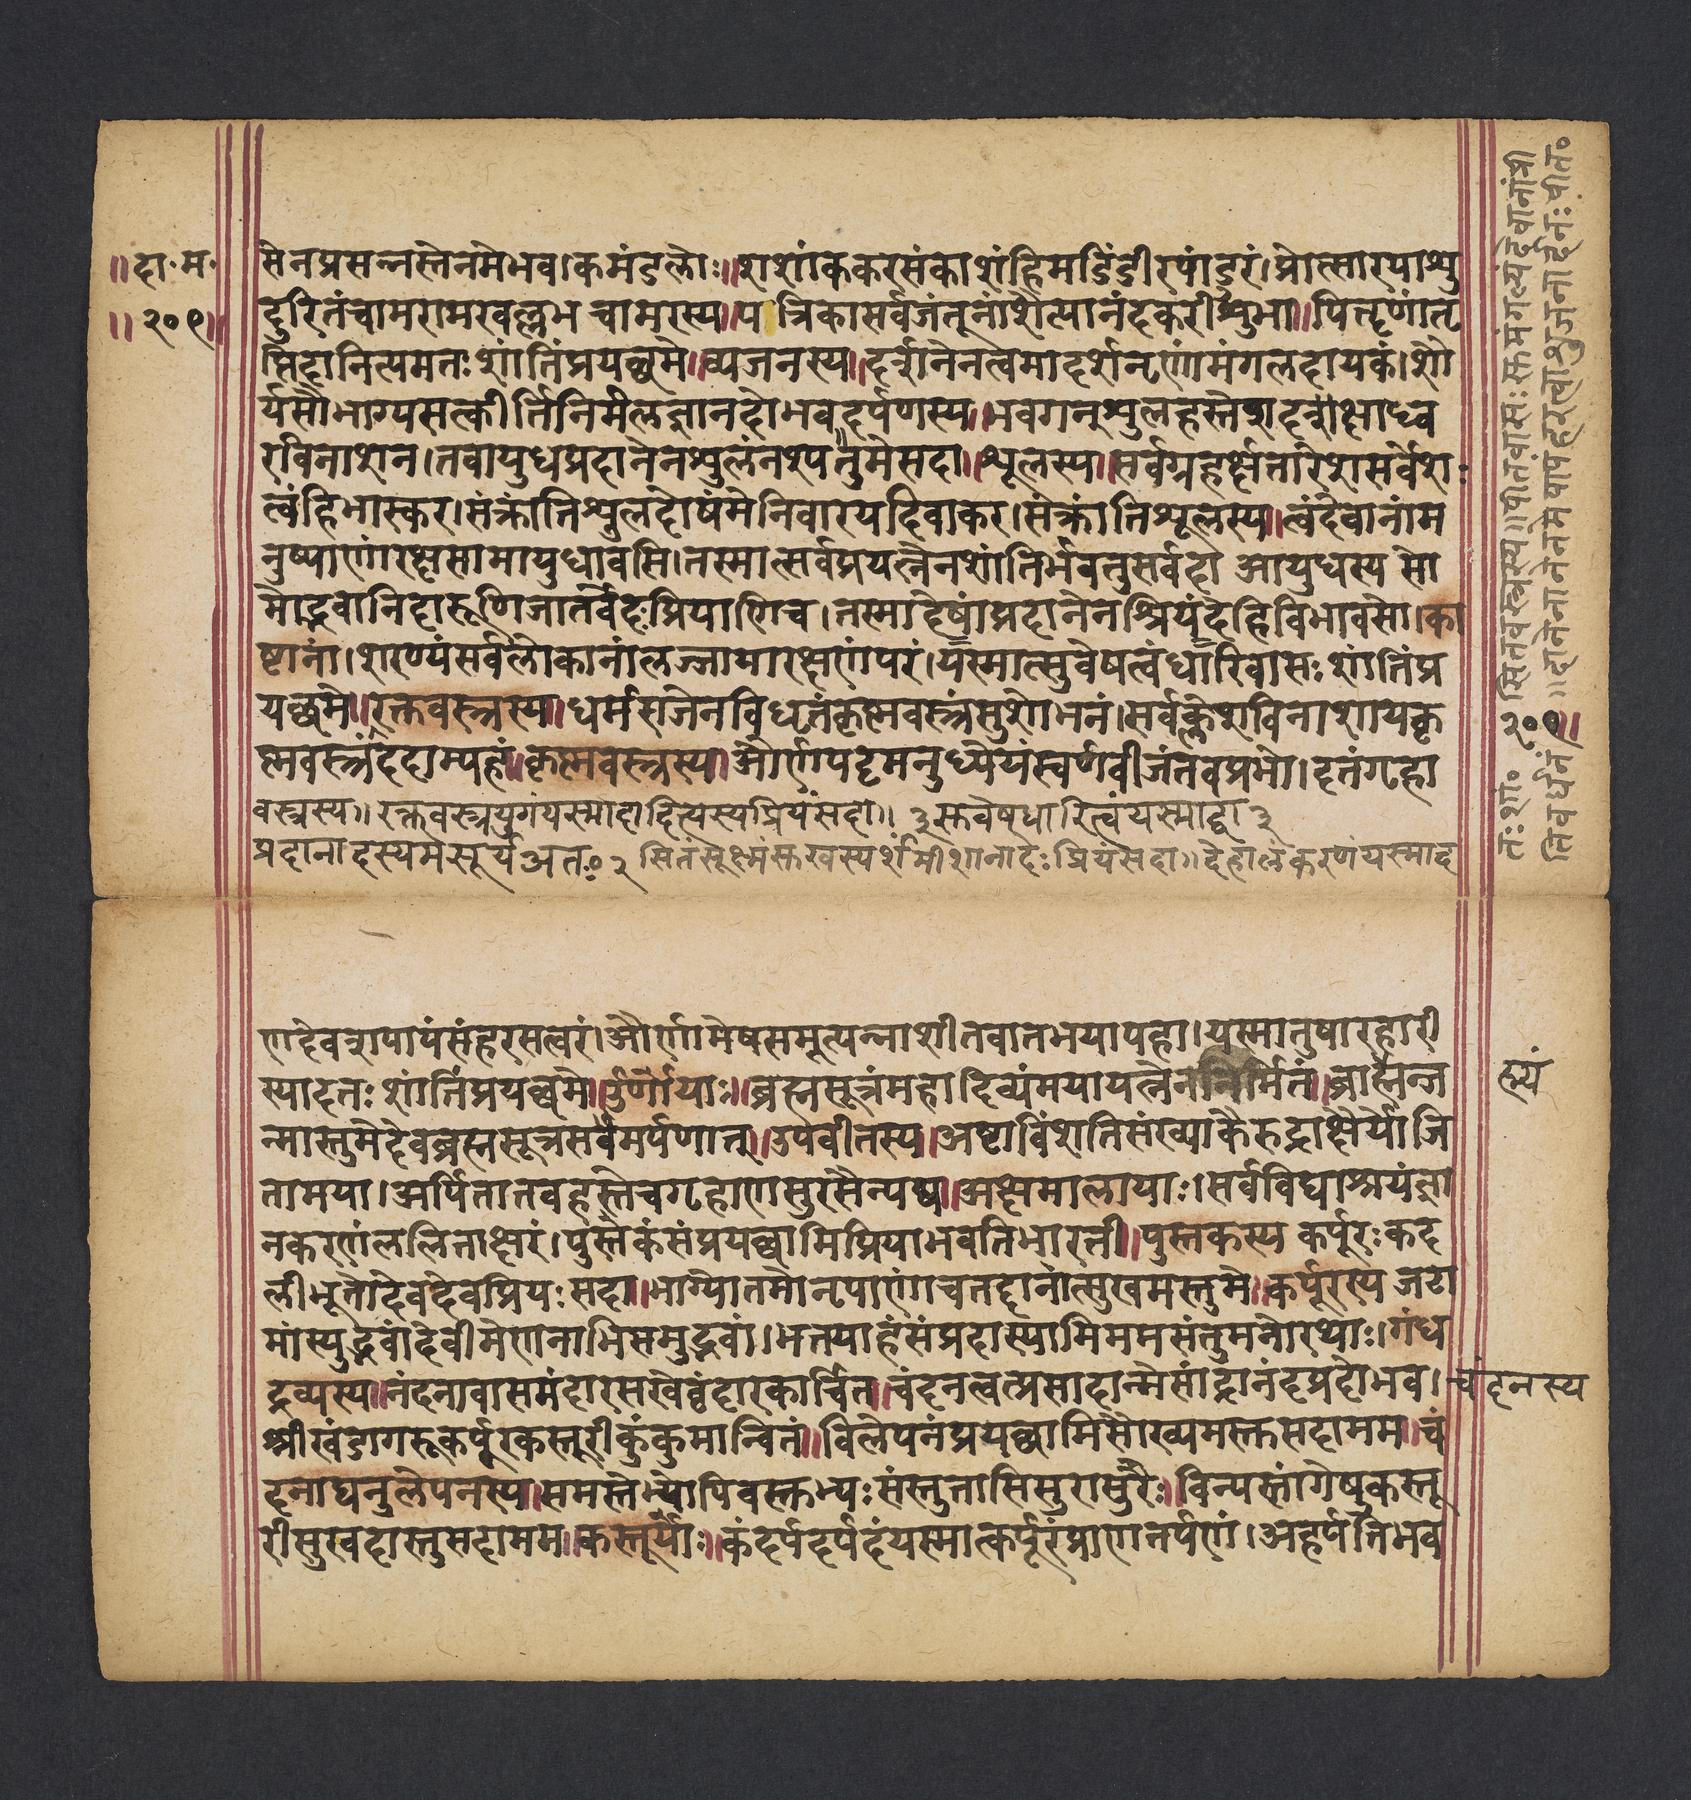 ॥दा॰म॰
॥२०९॥
सेनप्रसन्नस्तेनमेभव।कमंडलोः॥शशांककरसंकाशंहिमडिंडीरपांडुरं।प्रोत्सारयाशु
दुरितंचामरामरवल्लभ चामरस्य॥पत्रिकासर्वजंतूनांशैत्यानंदकरीशुभा॥पितॄणांतृ
प्तिदानित्यमतःशांतिंप्रयछमे॥व्यजनस्य॥दर्शनेनत्वमादर्शनृणांमंगलदायकं।शौ
र्यसौभाग्यसत्कीर्तिनिर्मलज्ञानदोभवदर्पणस्य॥भवगनुशुलहस्तेशदक्षाध्व
रविनाशन।तवायुधप्रदानेनशुलंनश्यतुमेसदा॥शूलस्य॥सर्वग्रहर्क्षतारेशसर्वेशः
त्वंहिभास्कर।संक्रांतिशुलदोषंमेनिवारयदिवाकर।संक्रांतिशूलस्य॥त्वंदेवानांम
नुष्याणांरक्षसामायुधावसि।तस्मात्सर्वप्रयत्नेनशांतिर्भवतुसर्वदा आयुधस्य सो
मोद्भवानिदारूणिजातवेदःप्रियाणिच।तस्मादेषांप्रदानेनश्रियंदेहिविभावसो।का
ष्टानां।शरण्यंसर्वलोकानांलज्जायारक्षणंपरं।यस्मात्सुवेषत्वंधारिवासःशांतिंप्र
यछमे॥रक्तवस्त्रस्य॥धर्मराजेनविधृतंकृष्णवस्त्रंसुशोभनं।सर्वक्लेशविनाशायकृ
ष्णवस्त्रंददाम्यहं॥कृष्णवस्त्रस्य॥और्णपट्टमनुध्येयस्वर्णबीजंतवप्रभो।दत्तंगृहा
वस्त्रस्य॥रक्तवस्त्रयुगंयस्मादादित्यस्यप्रियंसदा॥
प्रदानादस्यमेसूर्यअतः॰२ सितंसूक्ष्मंसुखस्पर्शमीशानादेःप्रियंसदा॥देहालंकरणंयस्माद
णदेवेशपापंसंहरसत्वरं।और्णामेषसमूत्पन्नाशीतवातभयापहा।यस्मातुषारहारी
स्यादतःशांतिंप्रयछमे॥र्नुर्णायाः॥ब्रह्मसूत्रंमहादिव्यंमयायत्नेननिर्मितं॥ब्राह्मंज
ह्म्यं
न्मास्तुमेदेवब्रह्मसूत्रसर्वमर्पणात्॥उपवीतस्य॥अष्टाविंशतिसंख्याकैरुद्राक्षैर्योजि
तामया।अर्पितातवहस्तेचगृहाणसुरसैन्यप॥अक्षमालायाः।सर्वविद्याश्रयंज्ञा
नकरणंललिताक्षरं।पुस्तकंसंप्रयछामिप्रियाभवतिभारती॥पुस्तकस्य कर्पूरःकद
लीभूतोदेवदेवप्रियःसदा॥भाग्योतमोनृपाणांचतद्दानात्सुखमस्तुमे॥कर्पूरस्य जटा
मांस्युद्भवांदेवीमेणनाभिसमुद्भवां।भतयाहंसंप्रदास्यामिममसंतुमनोरथाः।गंध
द्रव्यस्य॥नंदनावासमंदारसखेवृंदारकार्चित॥चंदनत्वत्प्रसादान्मेसांद्रानंदप्रदोभव। चंदनस्य
श्रीखंडागरूकर्पूरकस्तूरीकुंकुमान्वितं॥विलेपनंप्रयछामिसौख्यमस्तुसदामम॥चं
दनाद्यनुलेपनस्य॥समस्तेभ्योपिवस्तुभ्यःसंस्तुतासिसुरासुरैः॥विन्यस्तांगेषुकस्तू
रीसुखदास्तुसदामम॥कस्तूर्याः॥कंदर्पदर्पदंयस्मात्कर्पूरंप्राणतर्पणं।अहर्पतिभव